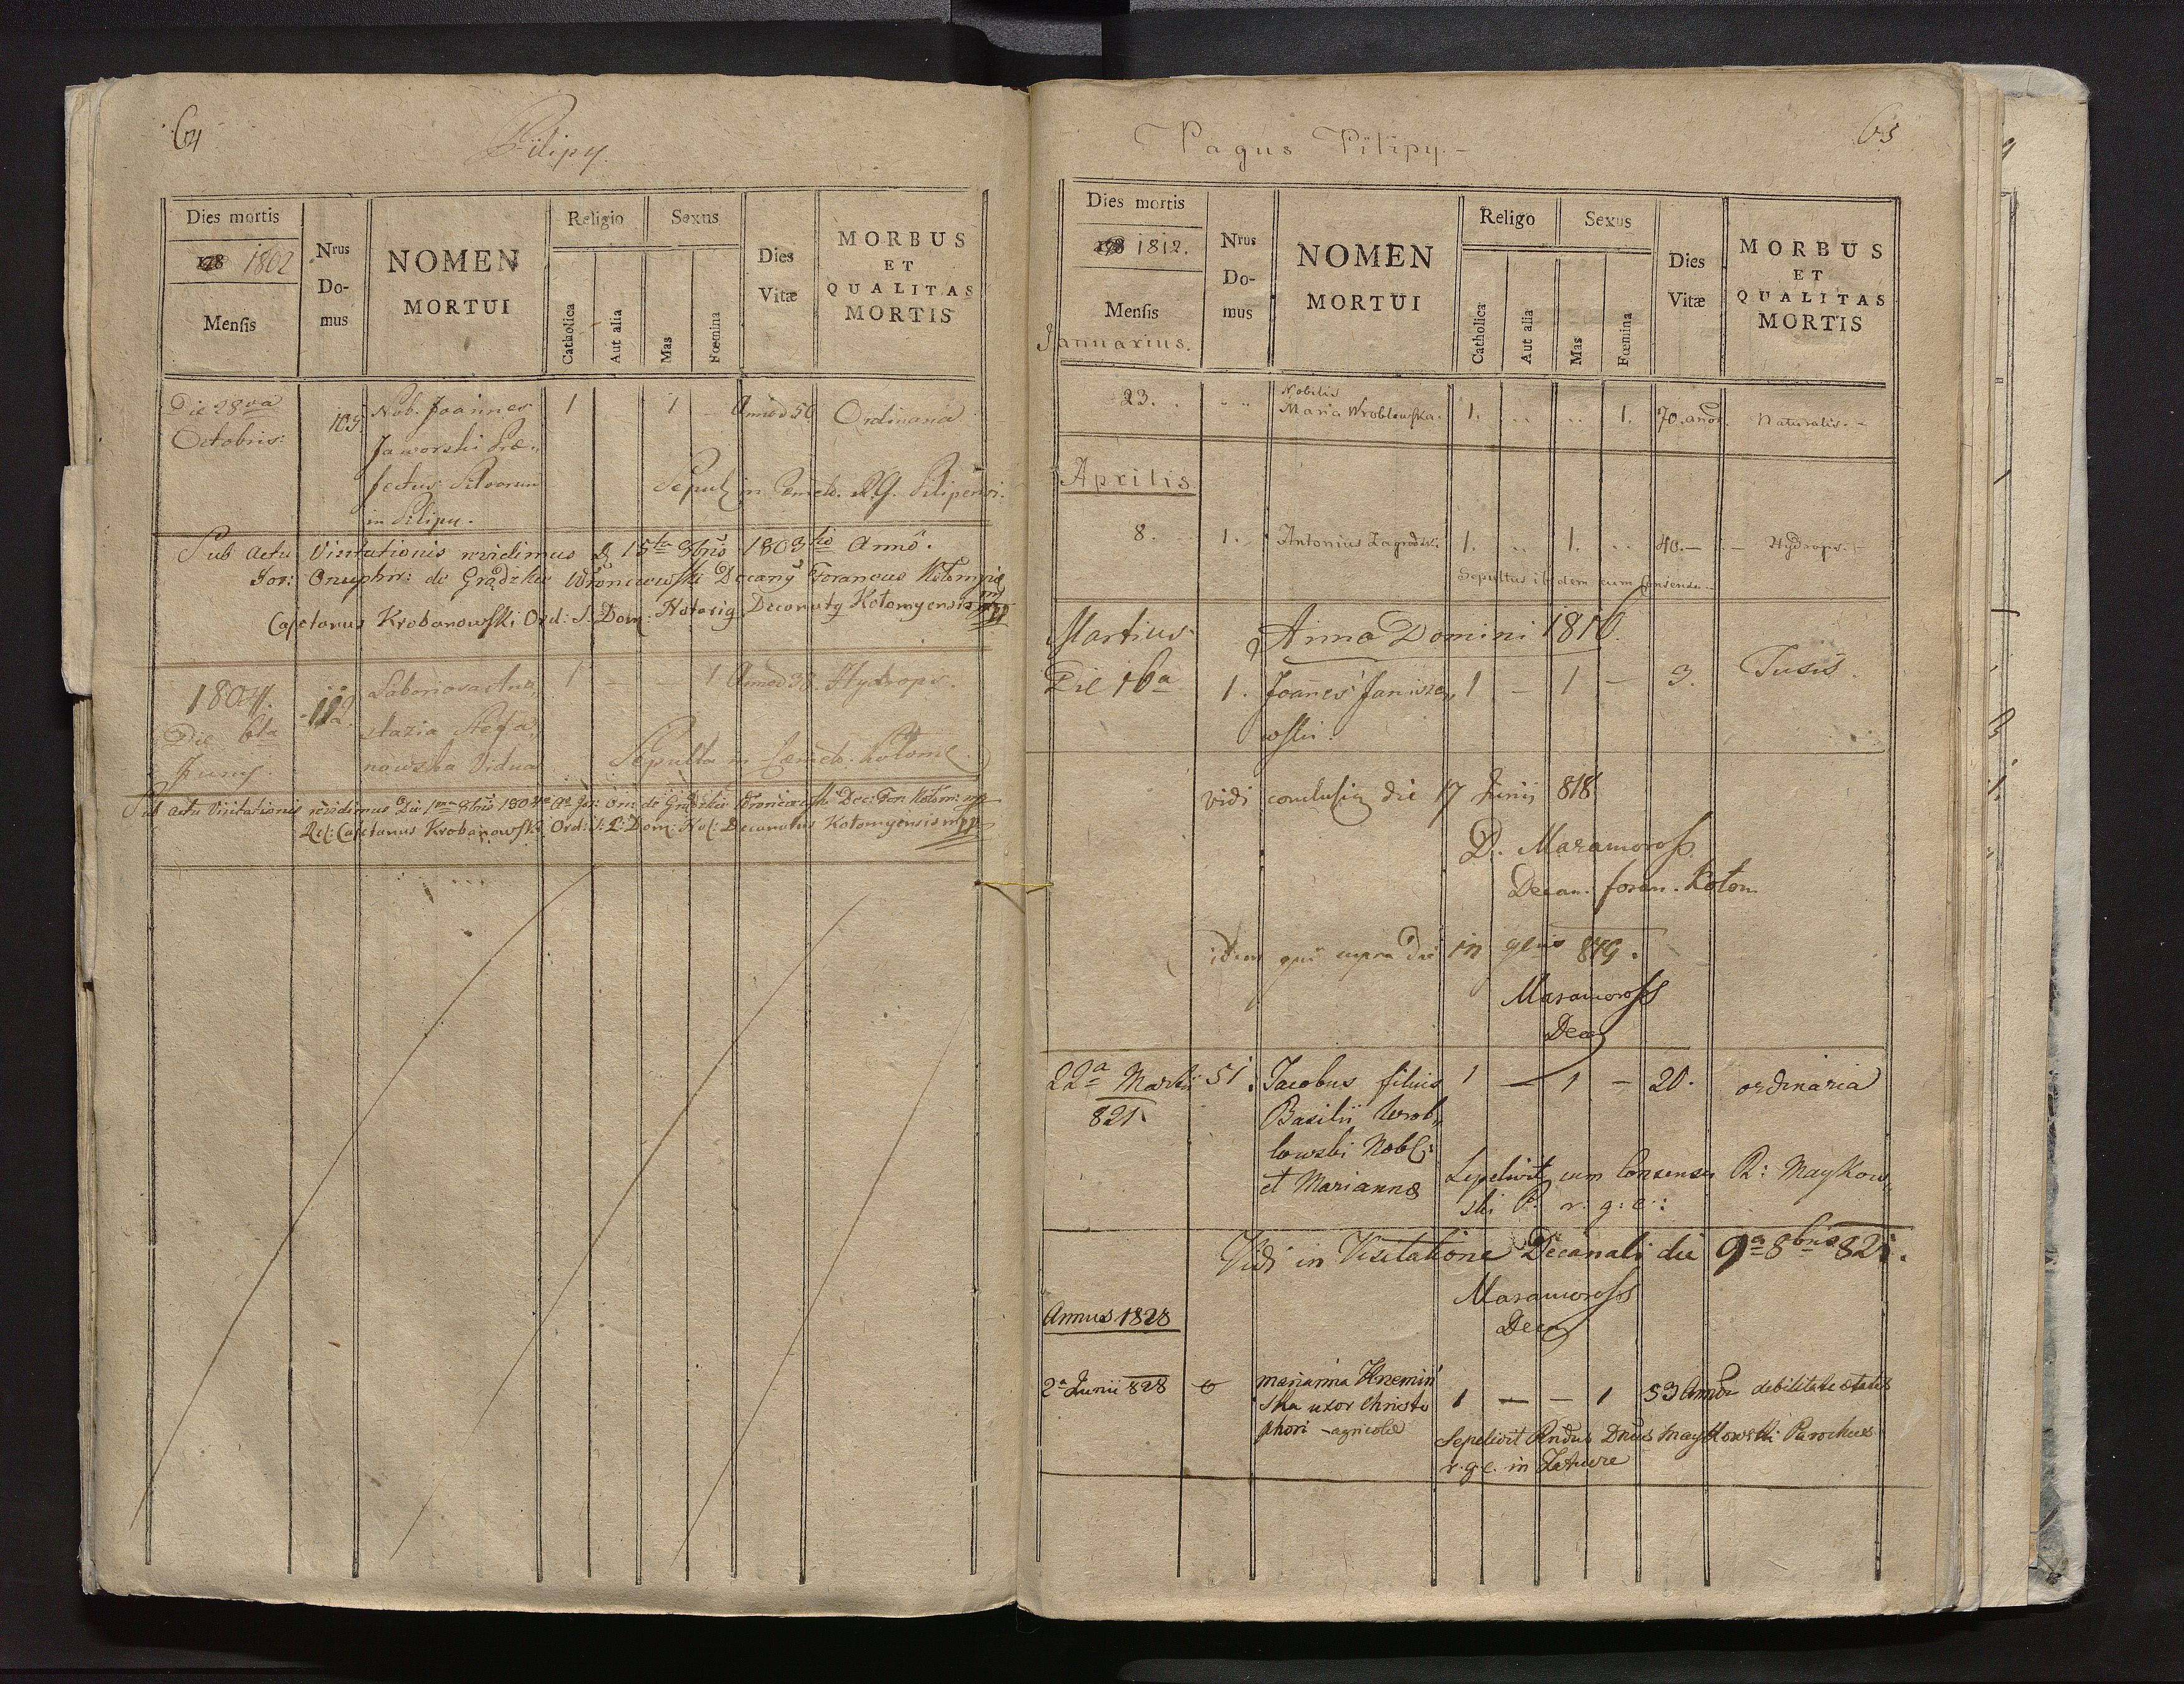 64
Pilipy.
Dies mortis
178 1802
Mensis
Nrus
Do-
mus
NOMEN
MORTUI
Religio
Catholica
Aut alia
Sexus
Mas
Fœmina
Dies
Vitæ
MORBUS
ET
QUALITAS
MORTIS
Die 28va
Octobris:
109.
Nob. Joannes
Jaworski Præ-
fectus Silvarum
in Pilipy.
1 1 Annor 50 Ordinaria
Sepul in Cæmet. R.G. Pilipensi.
Sub actu Visitationis revidimus D 15ta 8bris 1803tio Anno.
Jos: Onuphri: de Grądzkie Wronczewski Decang Foraneus Kołomyie
Cajetanus Krobanowski Ord: S. Dom: Notarig Decanatg Kołomyensis mpp
1804.
Die 6ta
Junij.
112.
stazia Stefa-
nowska Vidua
1 — — 1 Annor 30. Hydropis.
Sepulta in Cæmet. Kołome.
Sub actu Visitationis revidimus Die 1ma 8bris 1804 Dec: For: Kołom: mp
Cajetanus Krobanowski Ord: S: P: Dom: Not: Decanatus Kołomyensis mpp
65
Pagus Pilipy.-
Dies mortis
178 1812.
Mensis
Januarius.
Nrus
Do-
mus
NOMEN
MORTUI
Religo
Catholica
Aut alia
Sexus
Mas
Fœmina
Dies
Vitæ
MORBUS
ET
QUALITAS
MORTIS
23. . . Nobilis
Maria Wroblewska. 1. .. .. 1. 70. anor. Naturalis.-
Aprilis
8. 1. Antonius Zagrodzki 1. .. 1. .. 40.— Hydrops.-
Sepultus ibidem cum Consensu.-
Martius Anno Domini 1816.
Die 16a 1. Joannes Janisze- 1 — 1 — 3. Tusis.
wski.
vidi conclusig die 17 Junij 818
D. Maramoross
Decan. foran. Kołom.
idem qui supra die in 9bris 819.
Maramoross
Dec
22a Martii 51. Jacobus filius 1 — 1 — 20. ordinaria
821.
Basilii Wrob-
lowski Nobl:
et Mariannæ
Sepelivit cum Consensu R: Maykow-
ski P. r. g. c.:
Vidi in Visitatione Decanali die 9a 8bris 821.
Maramoross
Dec
Annus 1828
2a Junii 828 6 marianna Krzemiń
ska uxor Christo
phori - agricolæ
1 — — 1 53 Annor debilitate ætatis
Sepelivit Rndus Dnus Maykowski Parochus
r.g.c. in